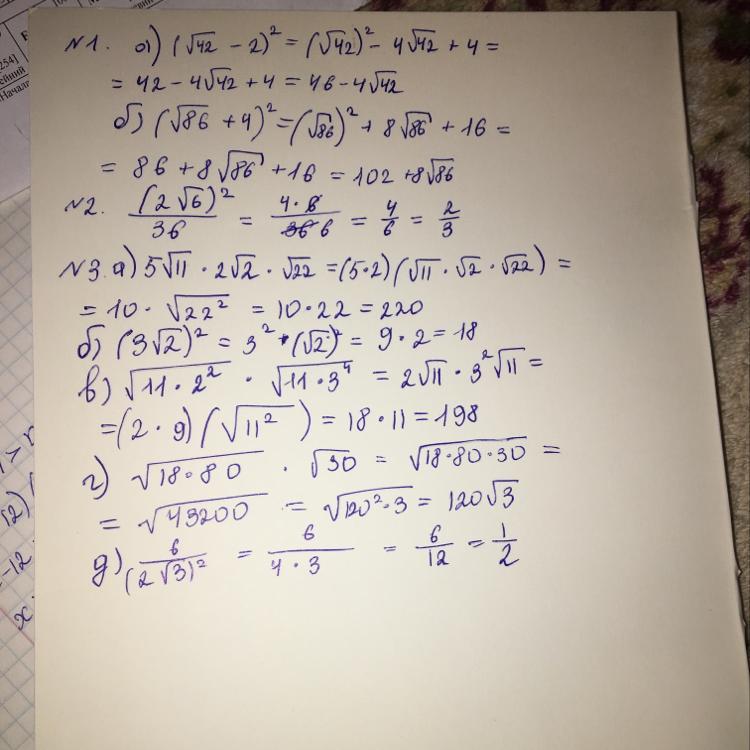 254]
ейний
Начала
№1. а) (√42 - 2)² = (√42)² - 4√42 + 4 =
= 42 - 4√42 + 4 = 46 - 4√42
б) (√86 + 4)² = (√86)² + 8√86 + 16 =
= 86 + 8√86 + 16 = 102 + 8√86
№2. (2√6)²/36 = 4·6/36 6 = 4/6 = 2/3
№3. а) 5√11 · 2√2 · √22 = (5·2)(√11 · √2 · √22) =
= 10 · √22² = 10·22 = 220
б) (3√2)² = 3² · (√2)² = 9 · 2 = 18
в) √11·2² · √11·3⁴ = 2√11 · 3²√11 =
= (2 · 9)(√11²) = 18 · 11 = 198
г) √18·80 · √30 = √18·80·30 =
= √43200 = √120²·3 = 120√3
д) 6/(2√3)² = 6/4·3 = 6/12 = 1/2